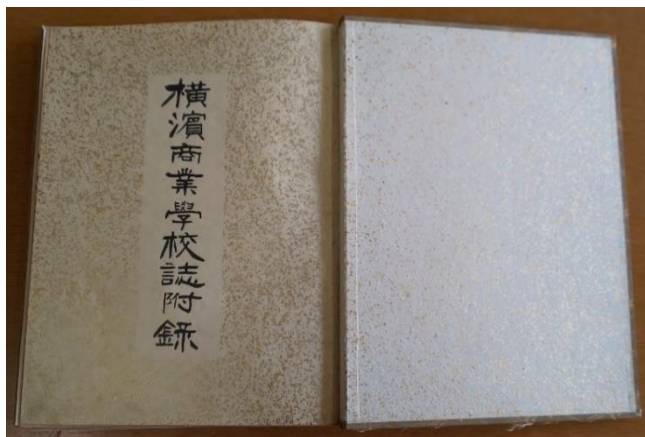 橫濱商業學校誌附錄